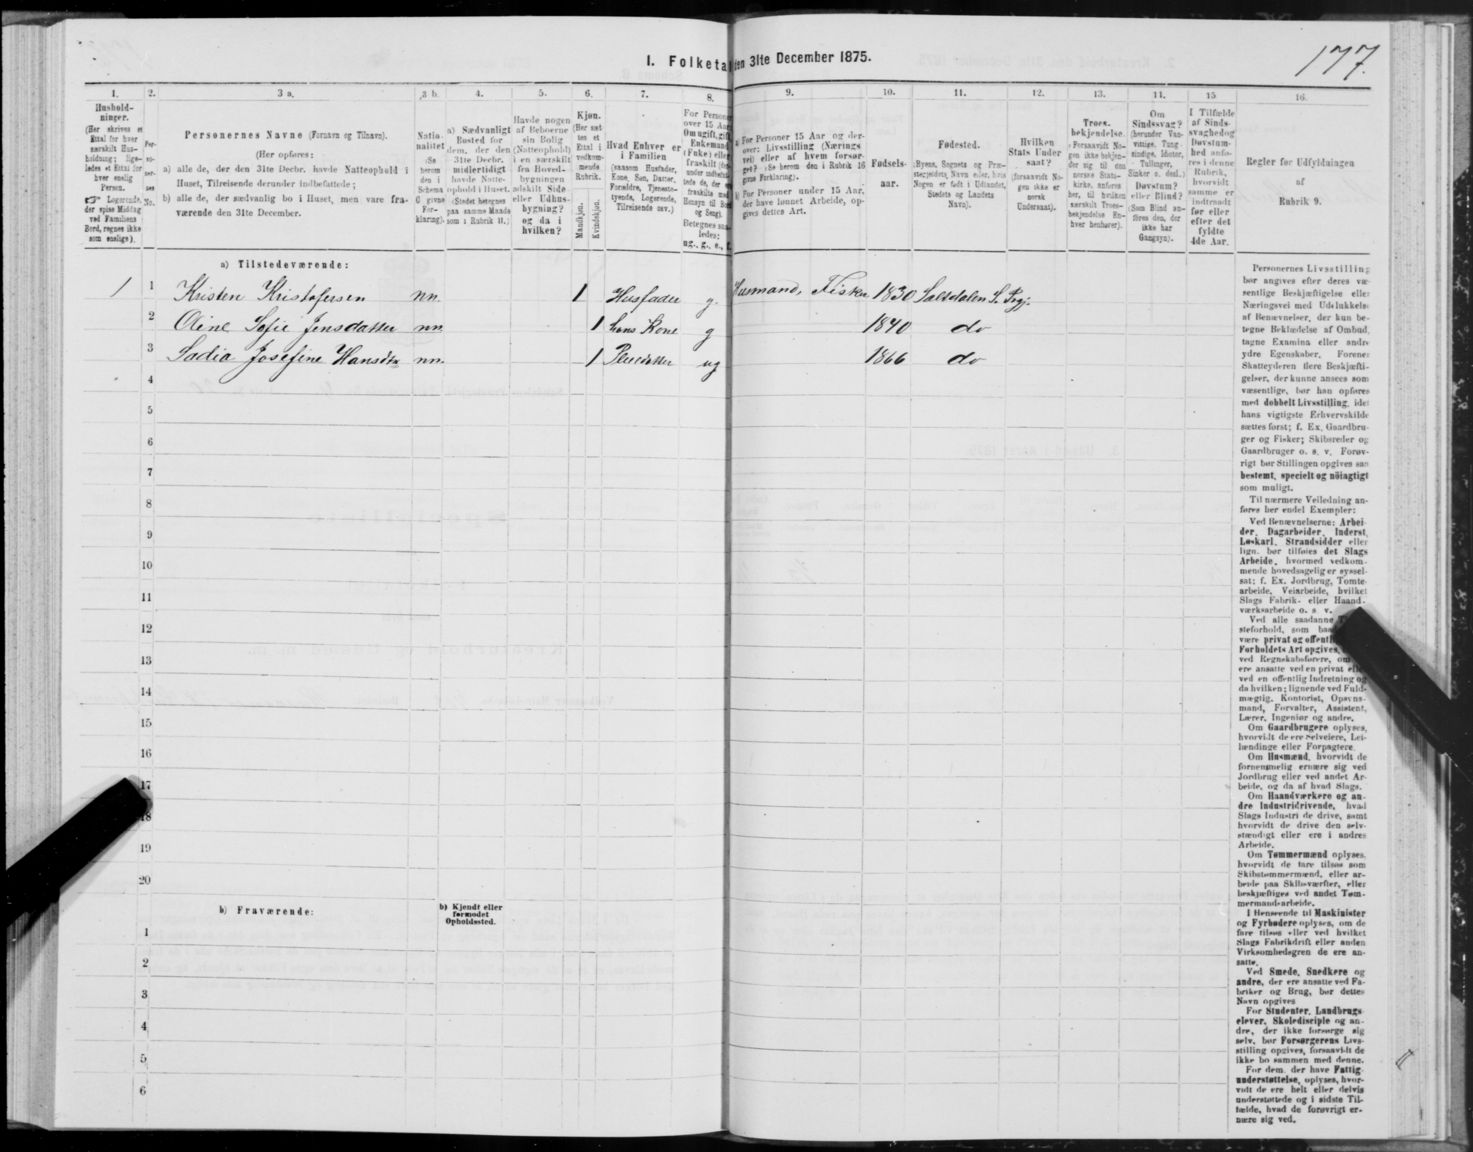 177.
I. Folketa
den 31te December 1875.
1.
2.
3 a.
3 b.
4.
5.
6.
7.
8.
9.
10.
11.
12.
13.
14.
15
16.
Hushold-
ninger.
(Her skrives et
Ettal for hver
særskilt Hus-
holdning; lige-
ledes et Ettal for
hver enslig
Person.
Logerende,
der spise Middag
ved Familiens
Bord, regnes ikke
som enslige).
Per-
so-
ner-
nes
No.
Personernes Navne (Fornavn og Tilnavn).
(Her opføres:
a) alle de, der den 31te Decbr. havde Natteophold i
Huset, Tilreisende derunder indbefattede;
b) alle de, der sædvanlig bo i Huset, men vare fra-
værende den 31te December.
Natio-
nalitet
(Se
herom
den i
Schema
C givne
For-
klaring).
a) Sædvanligt
Bosted for
dem, der den
31te Decbr.
midlertidigt
havde Natte-
ophold i Huset.
(Stedet betegnes
paa samme Maade
som i Rubrik 11.)
Havde nogen
af Beboerne
sin Bolig
(Natteophold)
i en særskilt
fra Hoved-
bygningen
adskilt Side-
eller Udhus-
bygning?
og da i
hvilken?
Kjøn.
(Her sæt-
tes et
Ettal i
vedkom-
mende
Rubrik.
Mandkjøn.
Kvindekjøn.
Hvad Enhver er
i Familien
(saasom Husfader,
Kone, Søn, Datter,
Forældre, Tjeneste-
tyende, Logerende,
Tilreisende osv.)
For Personer
over 15 Aar
Om ugift, gift,
Enkemand
(Enke) eller
fraskilt
Betegnes saa-
ledes:
ug., g., e., f.
a) For Personer 15 Aar og der-
over: Livsstilling (Nærings-
vei) eller af hvem forsør-
get? (Se herom den i Rubrik 16
givne Forklaring).
b) For Personer under 15 Aar,
der have lønnet Arbeide, op-
gives dettes Art.
Fødsels-
aar.
Fødested.
(Byens, Sognets og Præ-
stegjeldets Navn eller, hvis
Nogen er født i Udlandet,
Stedets og Landets
Navn).
Hvilken
Stats Under-
saat?
(forsaavidt No-
gen ikke er
norsk
Undersaat).
Troes-
bekjendelse.
(Forsaavidt No-
gen ikke bekjen-
der sig til
norske Stats-
kirke, anføres
her, til hvilken
særskilt Troes-
bekjendelse En-
hver henhører).
Om
Sindssvag?
(herunder Van-
vittige, Tung-
sindige, Idioter,
Tullinger,
Sinker o. desl.)
Døvstum?
eller Blind?
(Som Blind an-
føres den, der
ikke har
Gangsyn).
I Tilfælde
af Sinds-
svaghed og
Døvstum-
hed anfø-
res i denne
Rubrik,
hvorvidt
samme er
indtraadt
før eller
efter det
fyldte
4de Aar.
Regler for Udfyldningen
af
Rubrik 9.
a) Tilstedeværende:
1 1 Kristen Kristofersen nn. 1 Husfader g. Husmand, Fisker 1830 Saltdalen S. Prgj.
2 Oline Sofie Jensdatter nn. 1 hans Kone g 1840 do
3 Josefine nn. 1 ug 1866 do
4
5
6
7
8
9
10
11
12
13
14
15
16
17
18
19
20
b) Fraværende:
b) Kjendt eller
formodet
Opholdssted.
1
2
3
4
5
6
Personernes Livsstilling
bør angives efter deres væ-
sentlige Beskjæftigelse eller
Næringsvei med Udelukkelse
af Benævnelser, der kun be-
tegne Beklædelse af Ombud,
tagne Examina eller andre
ydre Egenskaber. Forener
Skatteyderen flere Beskjæfti-
gelser, der kunne ansees som
væsentlige, bør han opføres
med dobbelt Livsstilling, idet
hans vigtigste Erhvervskilde
sættes først; f. Ex. Gaardbru-
ger og Fisker; Skibsreder og
Gaardbruger o. s. v. Forøv-
rigt bør Stillingen opgives saa
bestemt, specielt og nøiagtigt
som muligt.
Til nærmere Veiledning an-
føres her endel Exempler:
Ved Benævnelserne: Arbei-
der, Dagarbeider, Inderst,
Løskarl, Strandsidder eller
lign. bør tilføies det Slags
Arbeide, hvormed vedkom-
mende hovedsagelig er syssel-
sat; f. Ex. Jordbrug, Tomte-
arbeide, Veiarbeide, hvilket
Slags Fabrik- eller Haand-
værksarbeide o. s. v.
Ved alle saadanne
steforhold, som
være privat og
Forholdets Art opgives,
ved Regnskabsførere,
ere ansatte ved en privat
ved en offentlig Indretning og
da hvilken; lignende ved Fuld-
mægtig, Kontorist, Opsyns-
mand, Forvalter, Assistent,
Lærer, Ingeniør og andre.
Om Gaardbrugere oplyses,
hvorvidt de ere Selveiere, Lei-
lændinge eller Forpagtere.
Om Husmænd, hvorvidt de
fornemmelig ernære sig ved
Jordbrug eller ved andet Ar-
beide, og da af hvad Slags.
Om Haandværkere og an-
dre Industridrivende, hvad
Slags Industri de drive, samt
hvorvidt de drive den selv-
stændigt eller ere i andres
Arbeide.
Om Tømmermænd oplyses,
hvorvidt de fare tilsøs som
Skibstømmermænd, eller ar-
beide paa Skibsværfter, eller
beskjæftiges ved andet Tøm-
mermandsarbeide.
I Henseende til Maskinister
og Fyrbødere oplyses, om de
fare tilsøs eller ved hvilket
Slags Fabrikdrift eller anden
Virksomhedsgren de ere an-
satte.
Ved Smede, Snedkere og
andre, der ere ansatte ved Fa-
briker og Brug, bør dettes
Navn opgives
For Studenter, Landbrugs-
elever, Skoledisciple og an-
dre, der ikke forsørge sig
selv, bør Forsørgerens Livs-
stilling opgives, forsaavidt de
ikke bo sammen med denne.
For dem, der have Fattig-
understøttelse, oplyses, hvor-
vidt de ere helt eller delvis
understøttede og i sidste Til-
fælde, hvad de forøvrigt er-
nære sig ved.